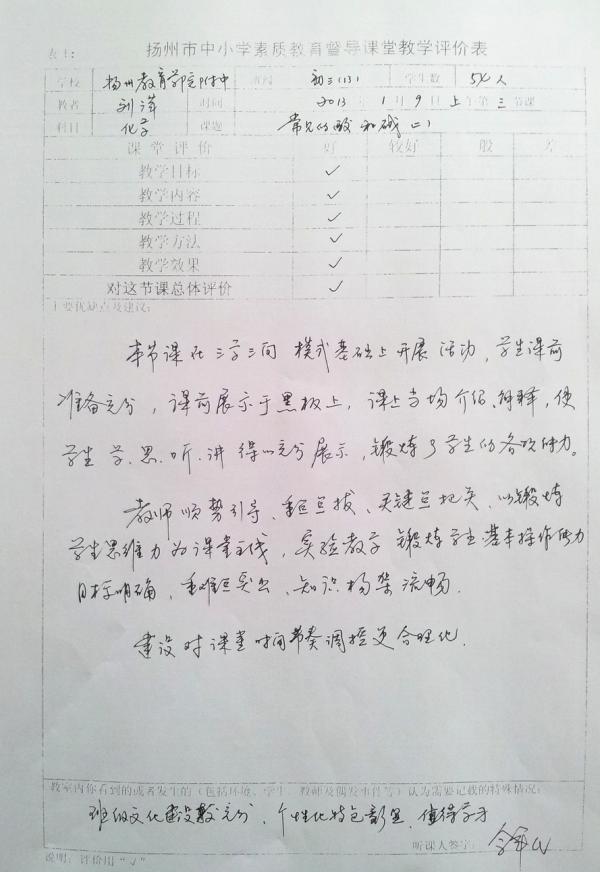 表1: 扬州市中小学素质教育督导课堂教学评价表
学校 扬州教育学院附中 班级 初三(13) 学生数 54人
教者 刘萍 时间 2013年1月9日上午第三节课
科目 化学 课题 常见的酸和碱(二)
课堂评价 好 较好 一般 差
教学目标 ✓
教学内容 ✓
教学过程 ✓
教学方法 ✓
教学效果 ✓
对这节课总体评价 ✓
主要优缺点及建议:
本节课在三学三问模式基础上开展活动,学生课前
准备充分,课前展示于黑板上,课上当场介绍、解释,使
学生学.思.听.讲得以充分展示,锻炼了学生的各项能力。
教师顺势引导、重点点拨、关键点把关,以锻炼
学生思维力为课堂主线,实验教学锻炼学生基本操作能力
目标明确,重难点突出、知识构架流畅.
建设对课堂时间节奏调控更合理化.
教室内你看到的或者发生的(包括环境、学生、教师及偶发事件等)认为需要记载的特殊情况:
班级文化建设较充分,个性化特色彰显,值得学习
听课人签字:
说明:评价用"✓"